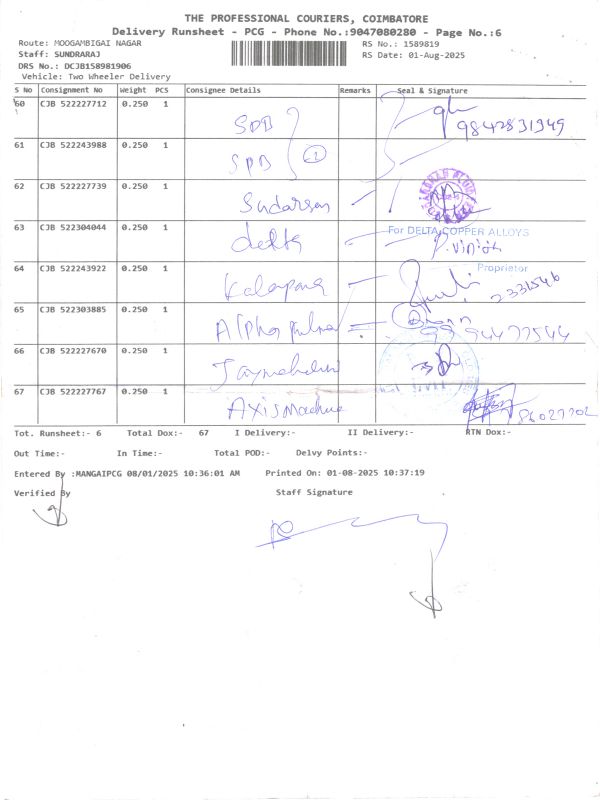 THE PROFESSIONAL COURIERS, COIMBATORE
Delivery Runsheet - PCG - Phone No.:9047080280 - Page No.:6
Route: MOOGAMBIGAI NAGAR RS No.: 1589819
Staff: SUNDRARAJ RS Date: 01-Aug-2025
DRS No.: DCJB158981906
Vehicle: Two Wheeler Delivery
S No Consignment No Weight PCS Consignee Details Remarks Seal & Signature
60 CJB 522227712 0.250 1 SPB 9842831949
61 CJB 522243988 0.250 1 SPB
62 CJB 522227739 0.250 1 Sudarsan
63 CJB 522304044 0.250 1 delta For DELTA COPPER ALLOYS
Proprietor
64 CJB 522243922 0.250 1 Kalapana 2331546
65 CJB 522303885 0.250 1 Alpha 9994477544
66 CJB 522227670 0.250 1
67 CJB 522227767 0.250 1 Axis Machine
Tot. Runsheet:- 6 Total Dox:- 67 I Delivery:- II Delivery:- RTN Dox:-
Out Time:- In Time:- Total POD:- Delvy Points:-
Entered By :MANGAIPCG 08/01/2025 10:36:01 AM Printed On: 01-08-2025 10:37:19
Verified By Staff Signature